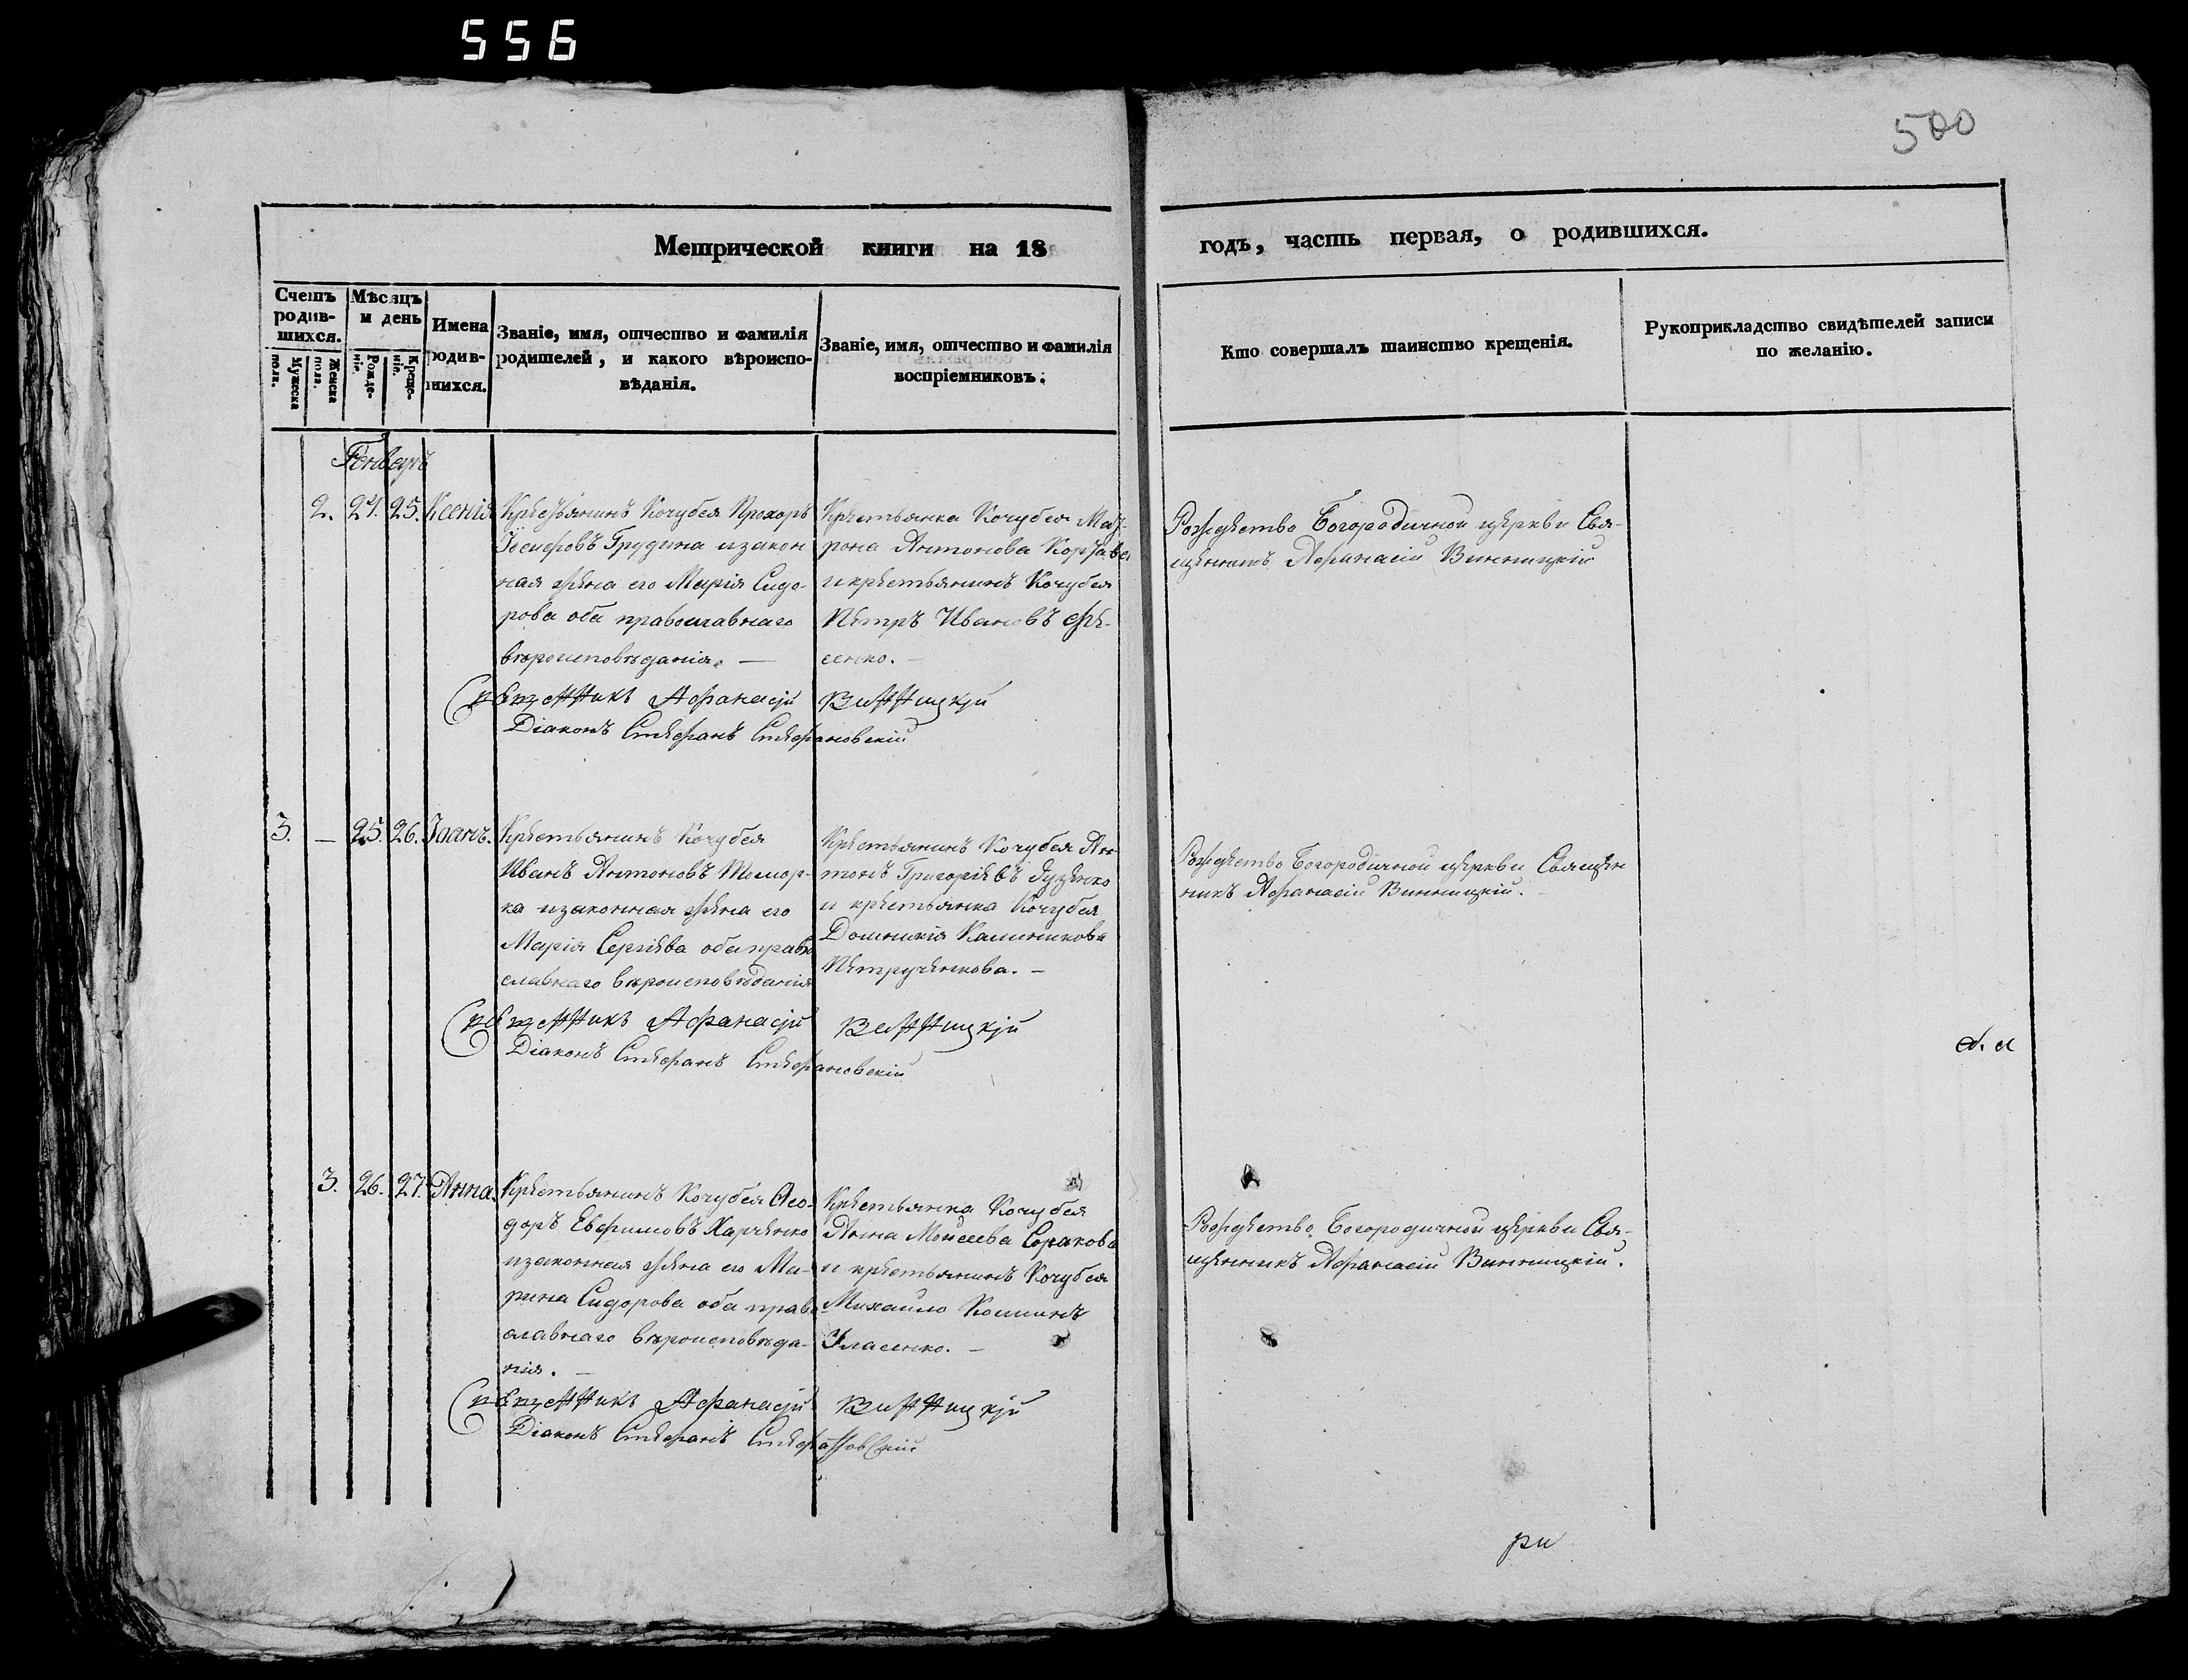 556
500
Метрической книги на 18
годъ, часть первая, о родившихся.
Счетъ родив-шихся.
Мужеска пола.
Женска пола.
Мѣсяцъ и день
Рожде-нiе.
Креще-нiе.
Имена родив-шихся.
Званiе, имя, отчество и фамилiя
родителей, и какого вѣроиспо-
вѣданiя.
Званiе, имя, отчество и фамилiя
воспрiемниковъ.
Кто совершалъ таинство крещенiя.
Рукоприкладство свидѣтелей записи
по желанiю.
Генварь
2. 24. 25. Ксенiя
Крестьянинъ Кочубея Прохоръ
Iосифовъ Грудина и закон
ная жена его Марiя Сидо-
рова оба православнаго
вѣроисповѣданiя. —
Крестьянка Кочубея Мат-
рона Антонова
и крестьянинъ Кочубея
Петръ Ивановъ Фе-
сенко. —
Рождество Богородичной церкви Свя-
щенникъ Афанасiй Винницкiй
Священникъ Афанасiй Винницкiй
Дiаконъ Стефанъ Стефановскiй
3. — 25. 26. Iоаннъ.
Крестьянинъ Кочубея
Иванъ Антоновъ
ка и законная жена его
Марiя Сергѣева оба право
славнаго вѣроисповѣданiя
Крестьянинъ Кочубея Ан-
тонъ Григорiевъ
и крестьянка Кочубея
Домникiя Калиникова
Петрученкова. —
Рождество Богородичной церкви Священ
никъ Афанасiй Винницкiй. —
Священникъ Афанасiй Винницкiй
Дiаконъ Стефанъ Стефановскiй
3. 26. 27. Анна.
Крестьянинъ Кочубея Ѳео-
доръ Евфимовъ Харченко
и законная жена его Ма-
рина Сидорова оба право
славнаго вѣроисповѣда-
нiя. —
Крестьянка Кочубея
Анна Мойсеева Соракова
и крестьянинъ Кочубея
Михайло Косминъ
Уласенко. —
Рождество Богородичной церкви Свя-
щенникъ Афанасiй Винницкiй.
Священникъ Афанасiй Винницкiй
Дiаконъ Стефанъ Стефановскiй
ри